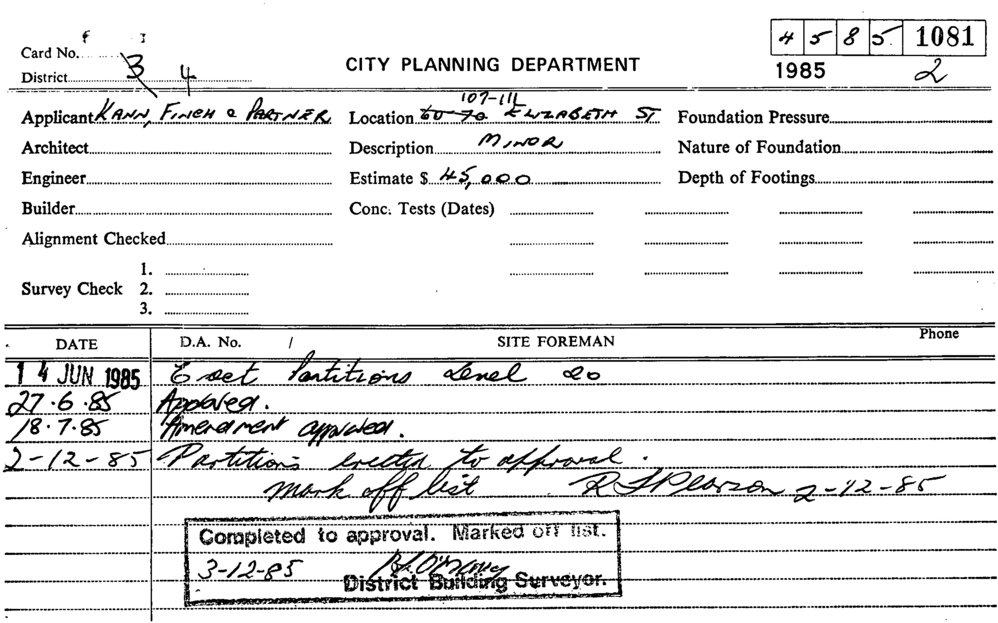 45 85 1081
Card No.
CITY PLANNING DEPARTMENT
1985 2
District 3 4
107-111
Applicant KANN, FINCH & PARTNER Location 60-70 ELIZABETH ST Foundation Pressure
Architect Description MINOR Nature of Foundation
Engineer Estimate $ 45,000 Depth of Footings
Builder Conc. Tests (Dates)
Alignment Checked
1.
Survey Check 2.
3.
DATE D.A. No. / SITE FOREMAN Phone
14 JUN 1985 Erect Partitions Level 20
27.6.85 Approved.
18.7.85 Amendment approved.
2-12-85 Partitions erected to approval.
mark off list R Pearson 2-12-85
Completed to approval. Marked off list.
3-12-85
District Building Surveyor.